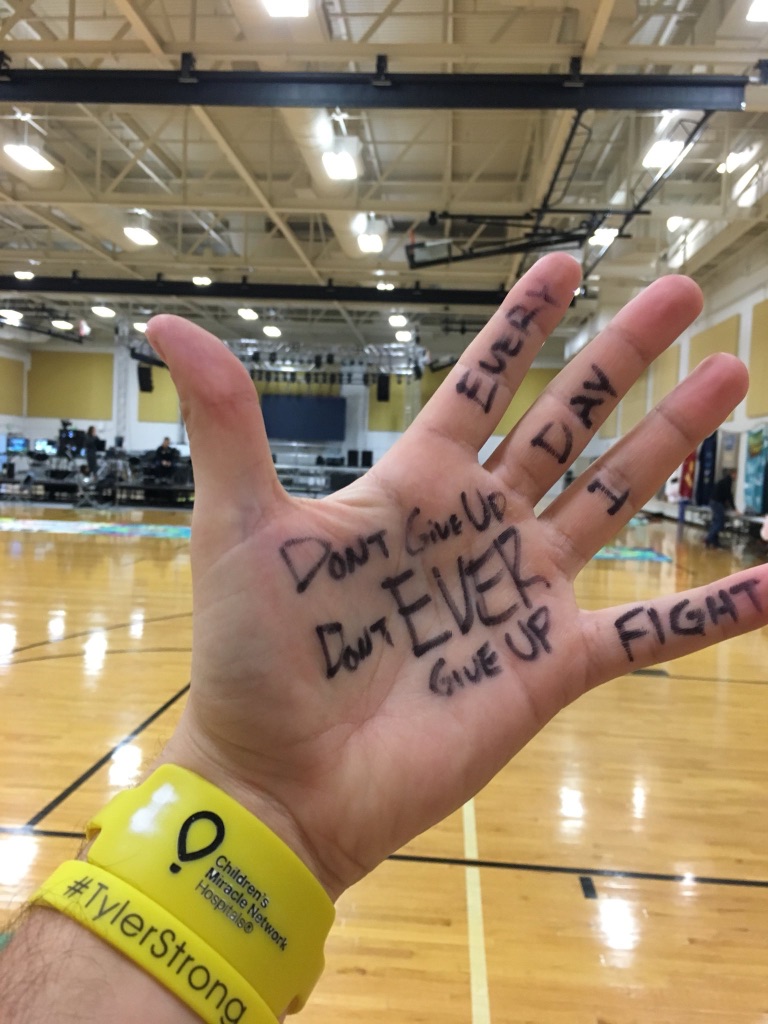 EVERY
DAY
I
FIGHT
DONT GIVE UP
DONT EVER
GIVE UP
Children's
Miracle Network
Hospitals®
#TylerStrong